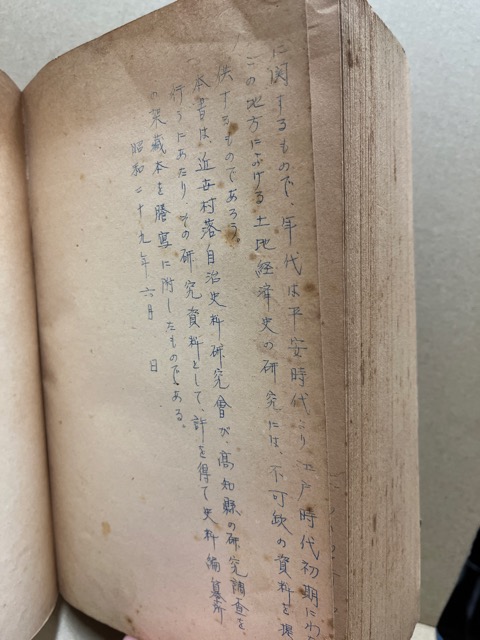 に関するもので、年代は平安時代より江戸時代初期にわ
この地方における土地経済史の研究には、不可欠の資料を提
供するものであろう。
本書は、近世村落自治史料研究會が、高知縣の研究調査を
行うにあたり、その研究資料として、許を得て史料編纂所
の架蔵本を謄寫に附したものである。
昭和二十九年六月　日